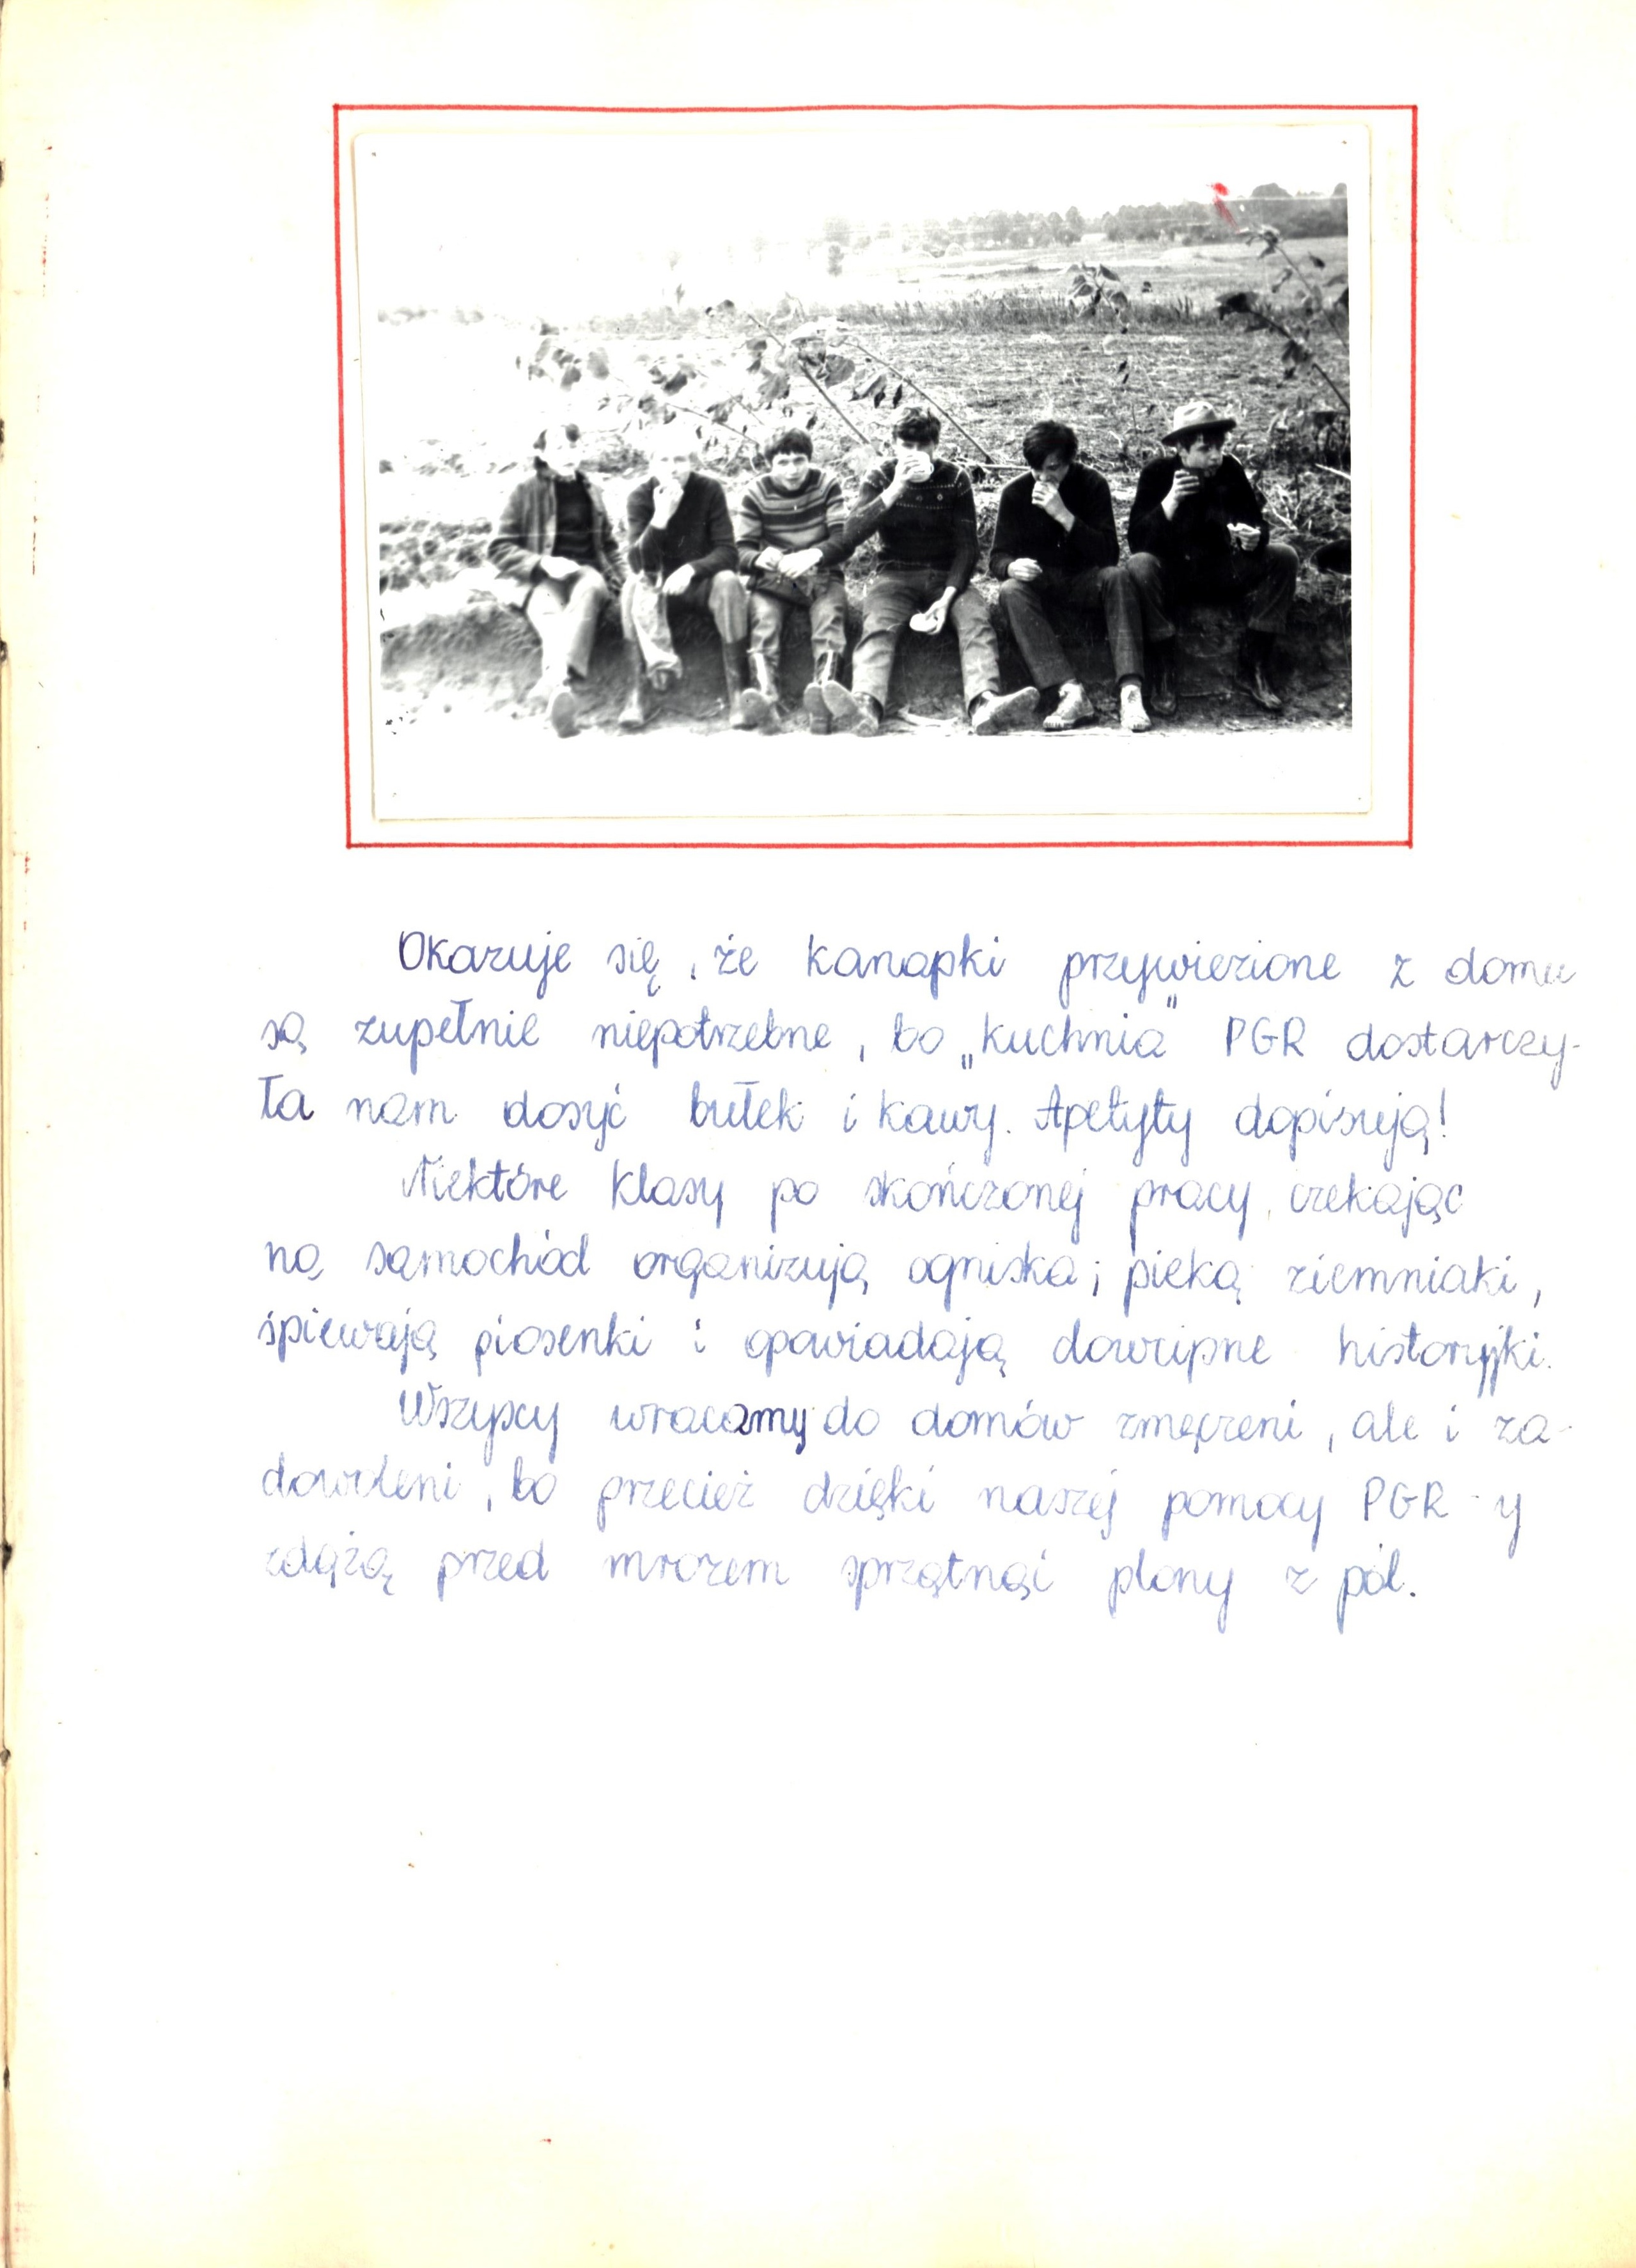 Okazuje się, że kanapki przywiezione z domu
są zupełnie niepotrzebne, bo „kuchnia" PGR dostarczy-
ła nam dosyć bułek i kawy. Apetyty dopisują!
Niektóre klasy po skończonej pracy, czekając
na samochód organizują ogniska; pieką ziemniaki,
śpiewają piosenki i opowiadają dowcipne historyjki.
Wszyscy wracamy do domów zmęczeni, ale i za-
dowoleni, bo przecież dzięki naszej pomocy PGR-y
zdążą przed mrozem sprzątnąć plony z pól.